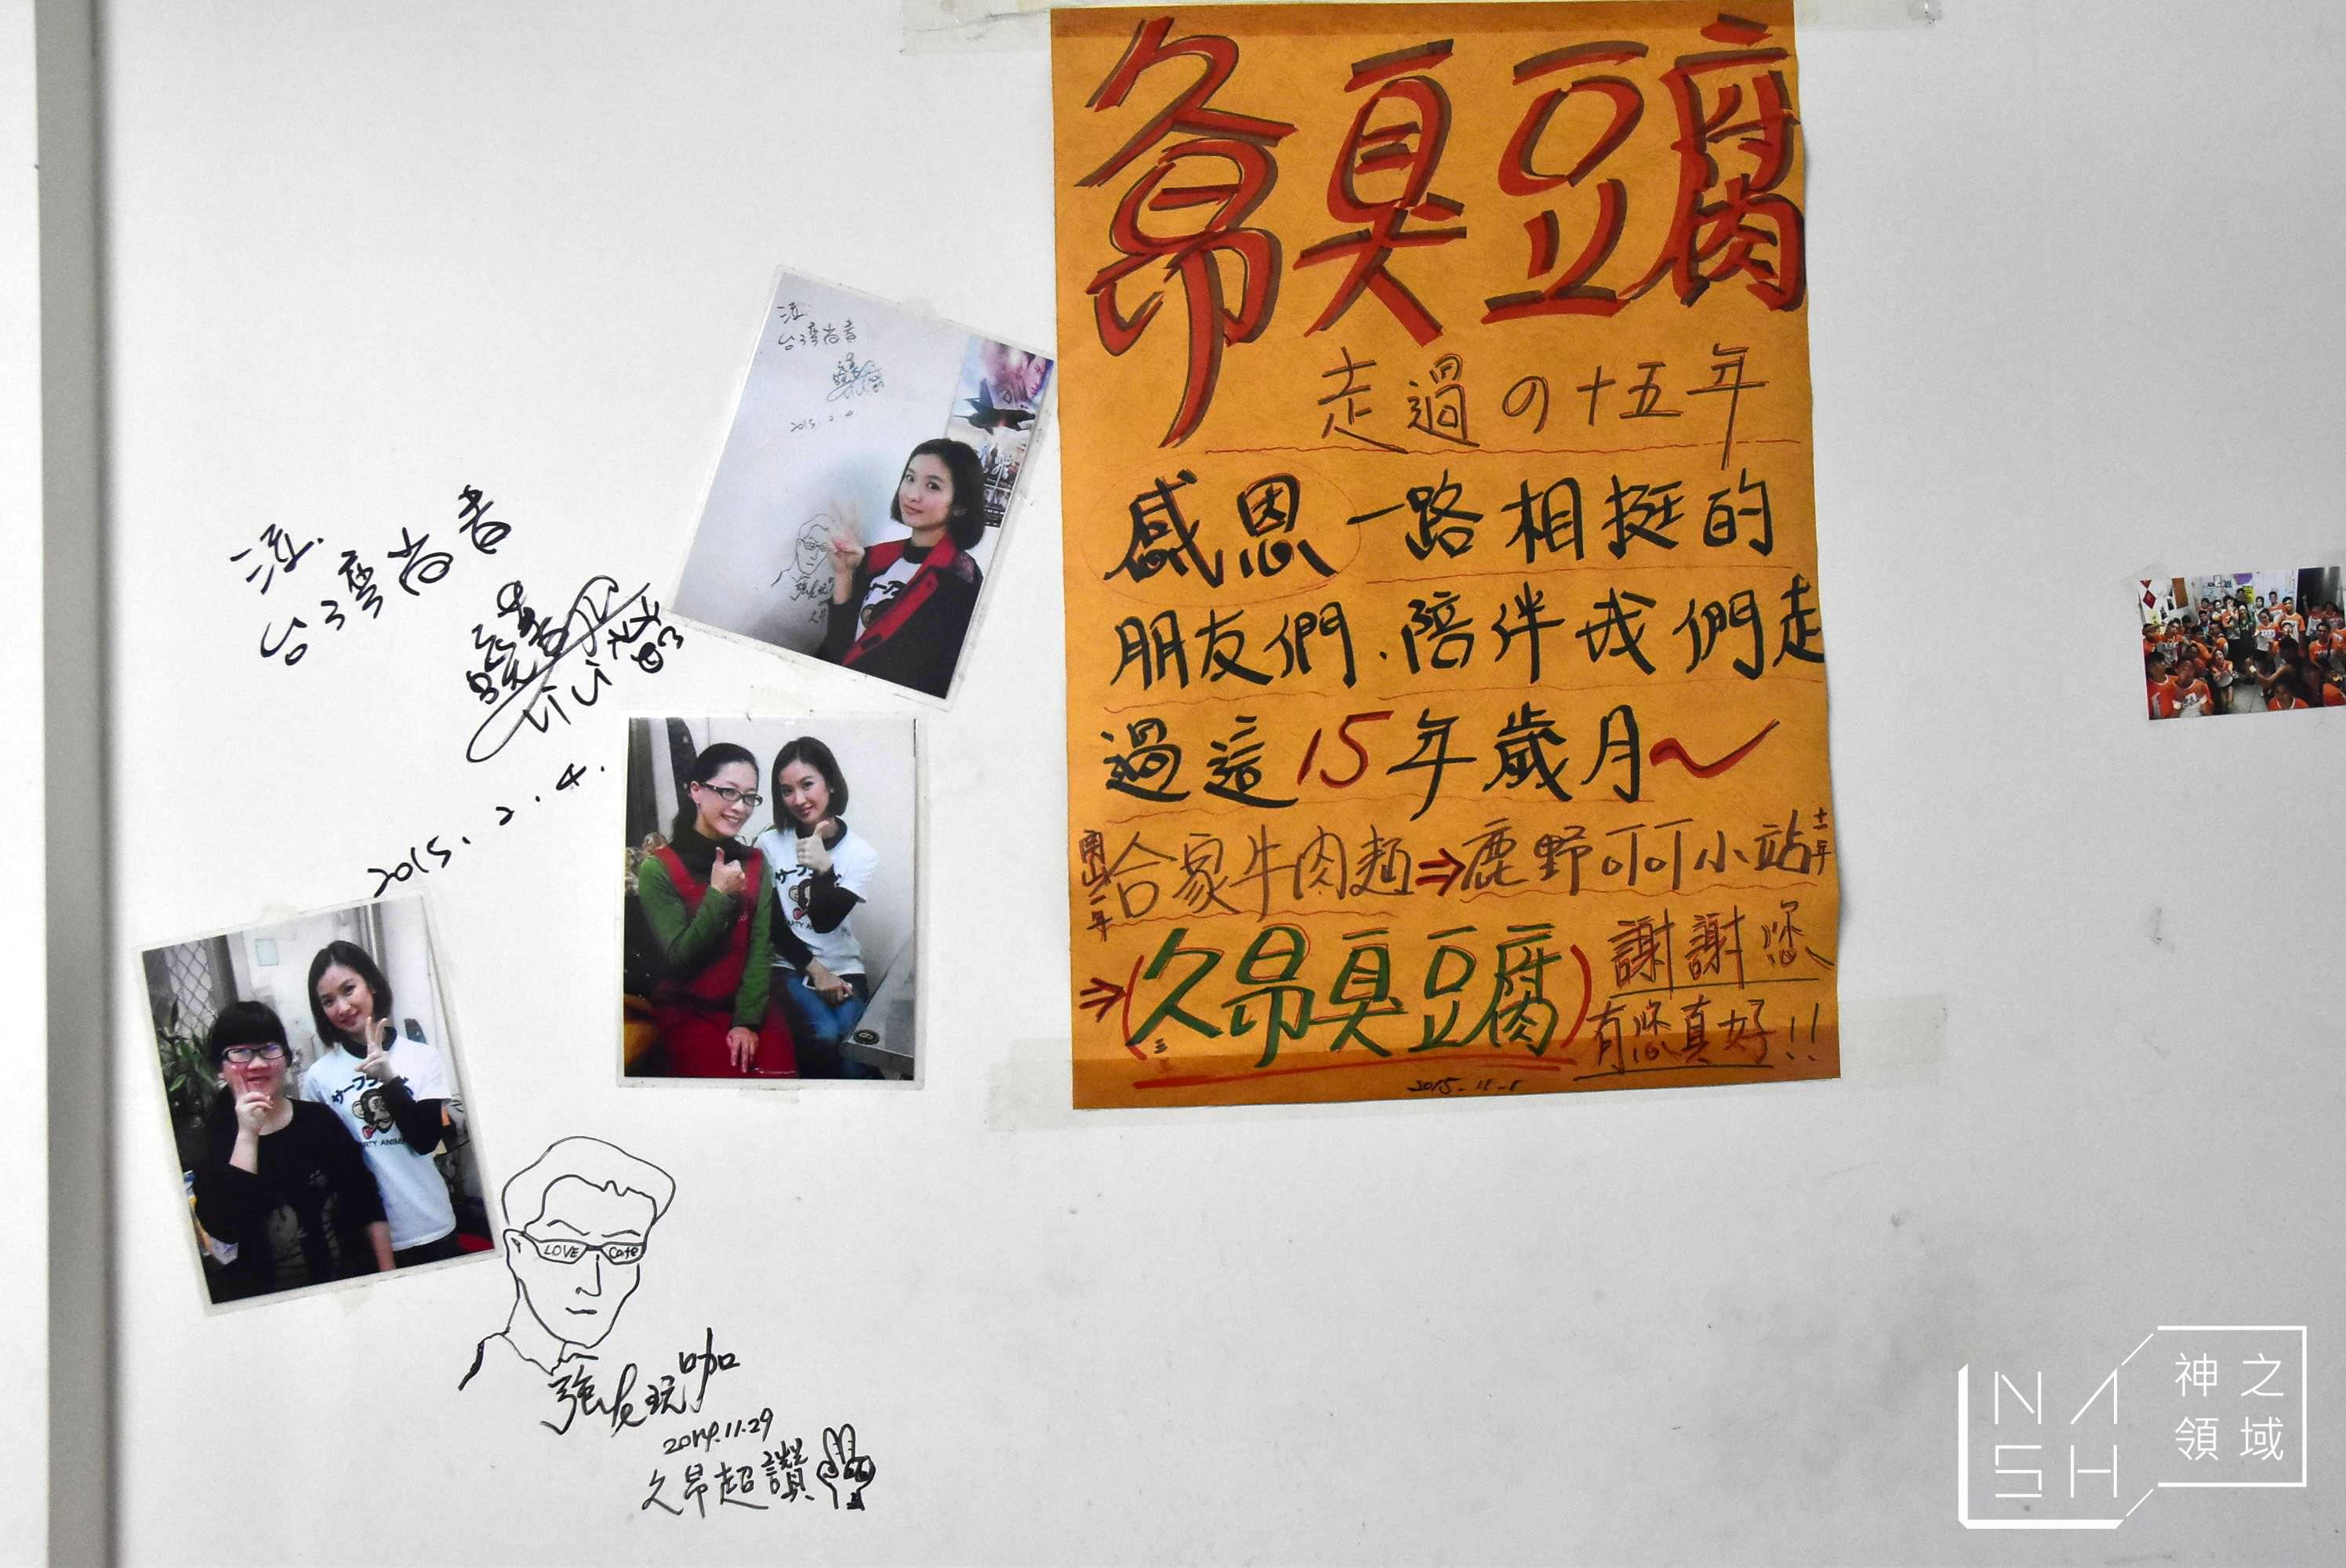 久昂臭豆腐
走過の十五年
感恩一路相挺的
朋友們.陪伴我們走
過這15年歲月~
岡山二年 合家牛肉麵⇒鹿野叮叮小站十一年
⇒(久昂臭豆腐)謝謝您
有您真好!!
2015.11.1
台灣尚青
2015.2.4.
LOVE Cafe
2014.11.29
久昂超讚
台灣尚青
2015.2.4
NASH
神之
領域